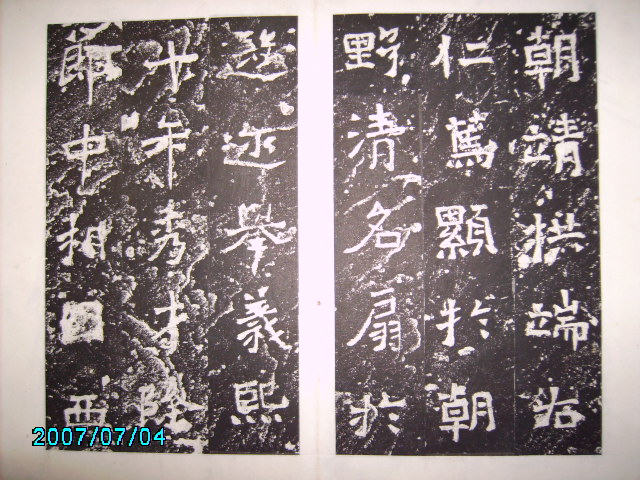 朝靖拱端右
仁篤顯扵朝
野清名扇扵
遐迩舉義熙
十年秀才除
郎中相西
2007/07/04